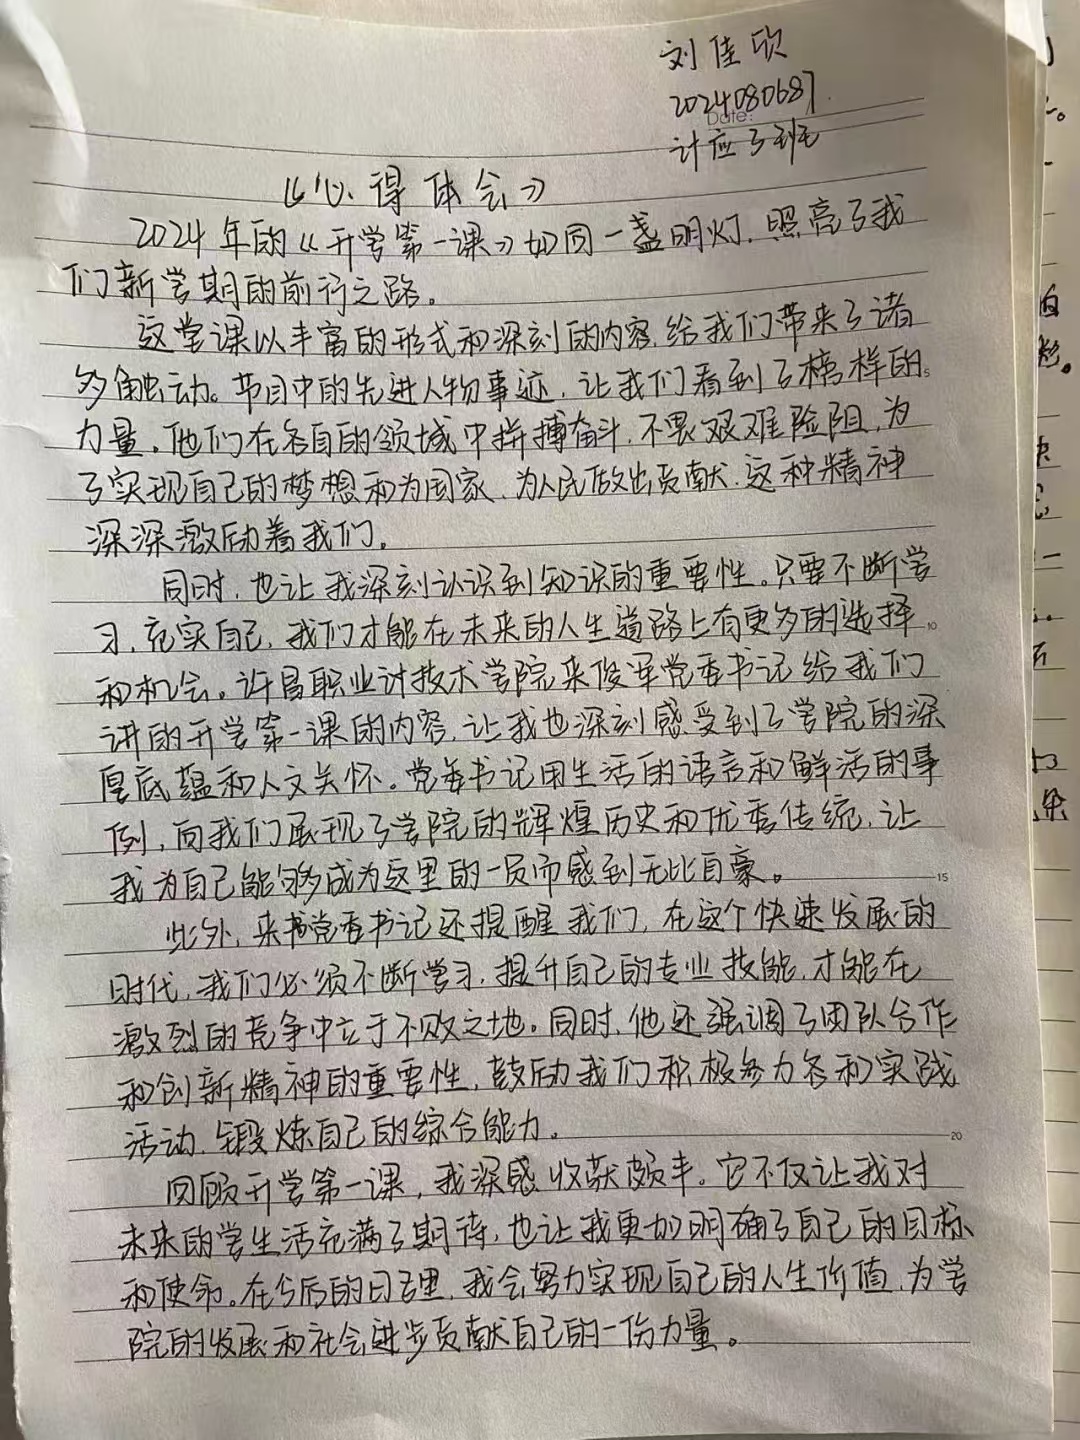 刘佳欣
2024080687
Date:
计应3班
《心得体会》
2024年的《开学第一课》如同一盏明灯,照亮了我
们新学期的前行之路。
这堂课以丰富的形式和深刻的内容,给我们带来了诸
多触动。节目中的先进人物事迹,让我们看到了榜样的
力量。他们在各自的领域中拼搏奋斗,不畏艰难险阻,为
了实现自己的梦想和为国家,为人民做出贡献,这种精神
深深激励着我们。
同时,也让我深刻认识到知识的重要性。只要不断学
习,充实自己,我们才能在未来的人生道路上有更多的选择
和机会。许昌职业计技术学院来俊军党委书记给我们
讲的开学第一课的内容,让我也深刻感受到了学院的深
厚底蕴和人文关怀。党委书记用生活的语言和鲜活的事
例,向我们展现了学院的辉煌历史和优秀传统,让
我为自己能够成为这里的一员而感到无比自豪。
此外,来书党委书记还提醒我们,在这个快速发展的
时代,我们必须不断学习,提升自己的专业技能,才能在
激烈的竞争中立于不败之地。同时,他还强调了团队合作
和创新精神的重要性,鼓励我们积极参加各和实践
活动,锻炼自己的综合能力。
回顾开学第一课,我深感收获颇丰。它不仅让我对
未来的学生活充满了期待,也让我更加明确了自己的目标
和使命。在今后的日子里,我会努力实现自己的人生价值,为学
院的发展和社会进步贡献自己的一份力量。
5
10
15
20